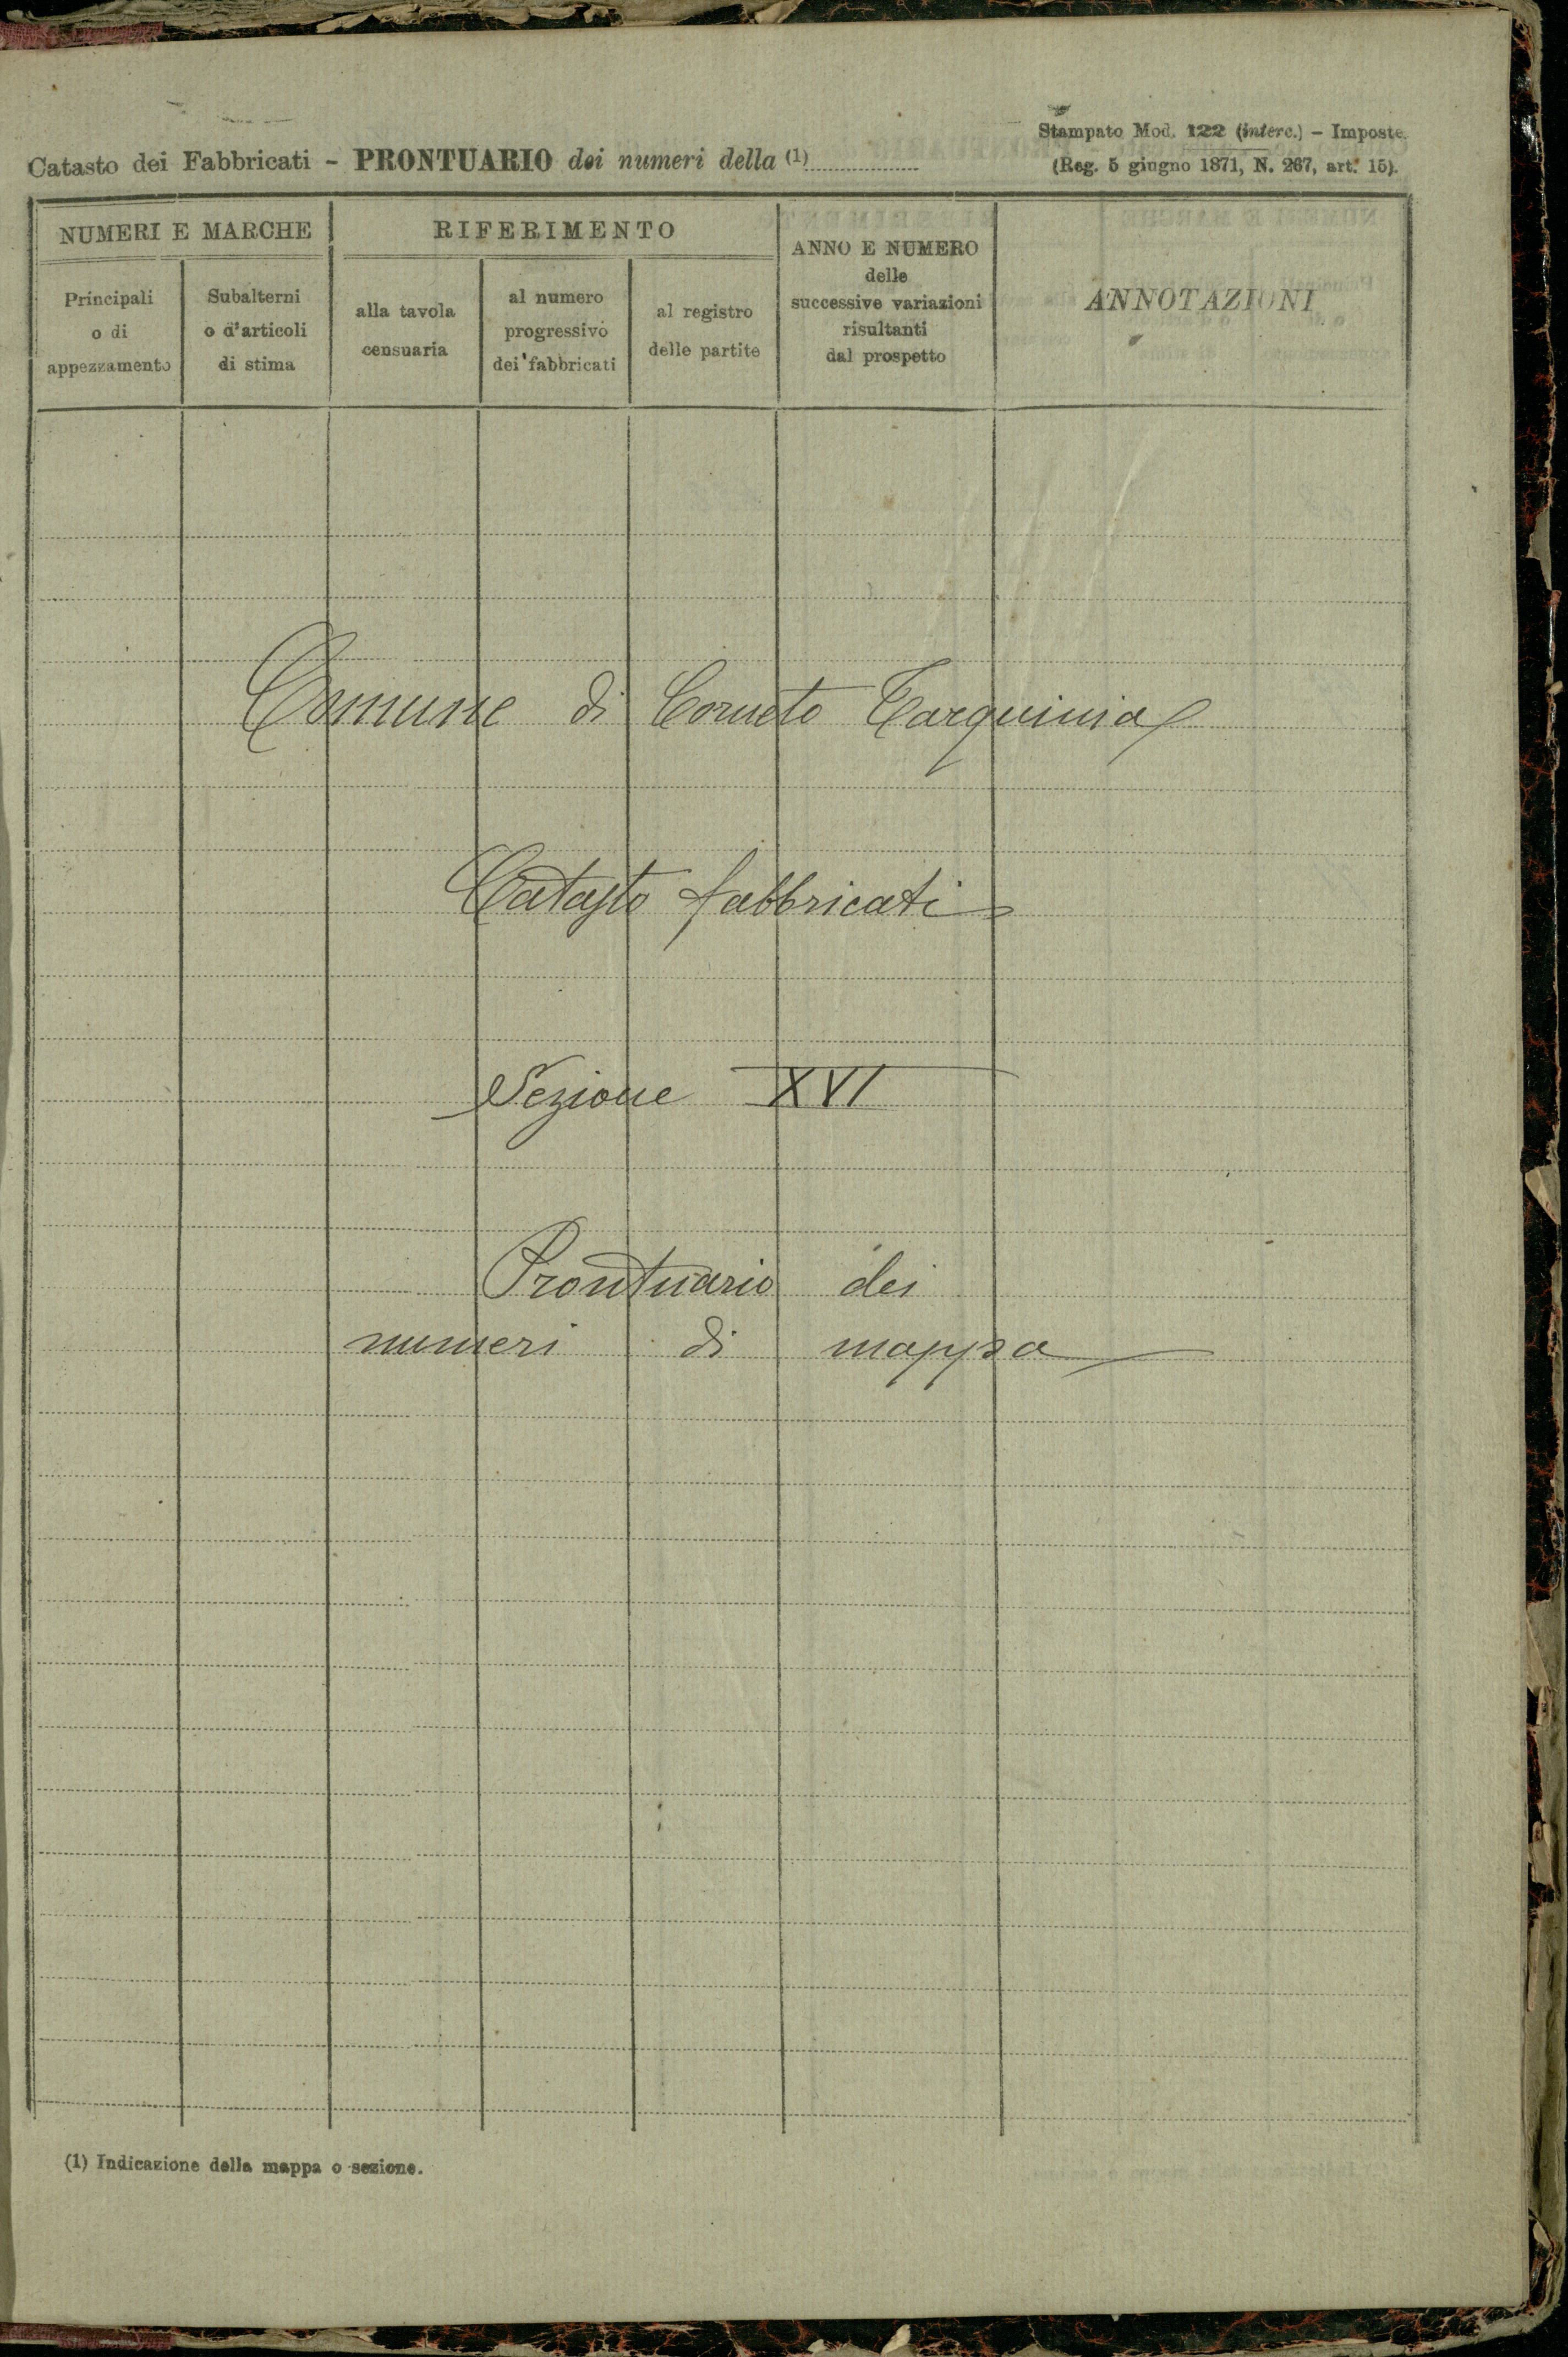 Stampato Mod. 122 (interc.) – Imposte.
Catasto dei Fabbricati – PRONTUARIO dei numeri della (1)
(Reg. 5 giugno 1871, N. 267, art. 15).
NUMERI E MARCHE
RIFERIMENTO
ANNO E NUMERO
delle
successive variazioni
risultanti
dal prospetto
ANNOTAZIONI
Principali
o di
appezzamento
Subalterni
o d'articoli
di stima
alla tavola
censuaria
al numero
progressivo
dei fabbricati
al registro
delle partite
Comune di Corneto Tarquinia
Catasto fabbricati
Sezione XVI
Prontuario dei
numeri di mappa
(1) Indicazione della mappa o sezione.